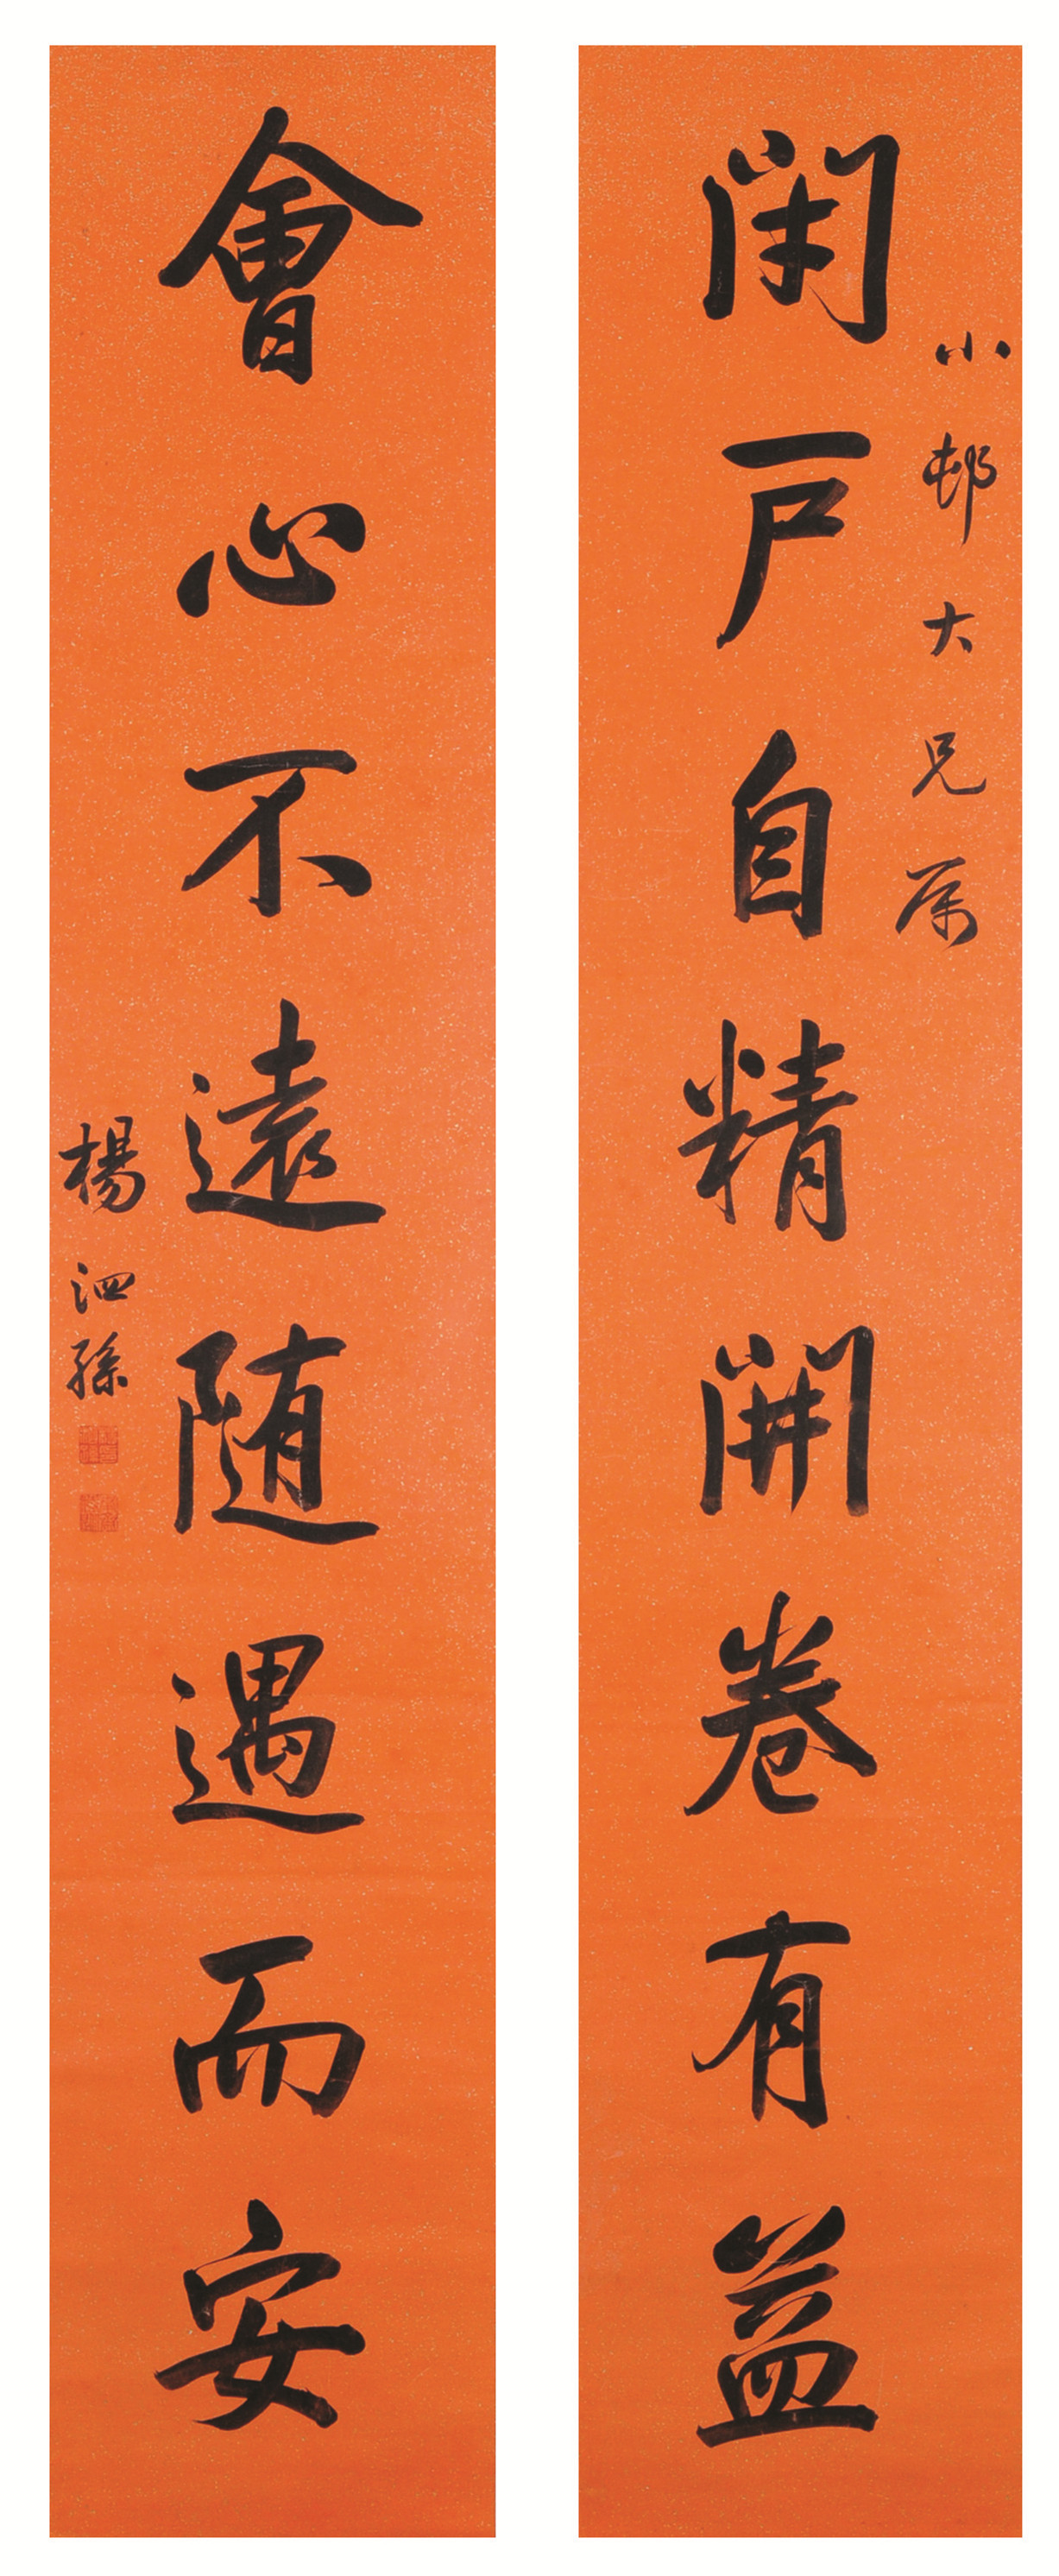 小邨大兄属
閉戸自精開卷有益
會心不遠随遇而安
楊泗孫